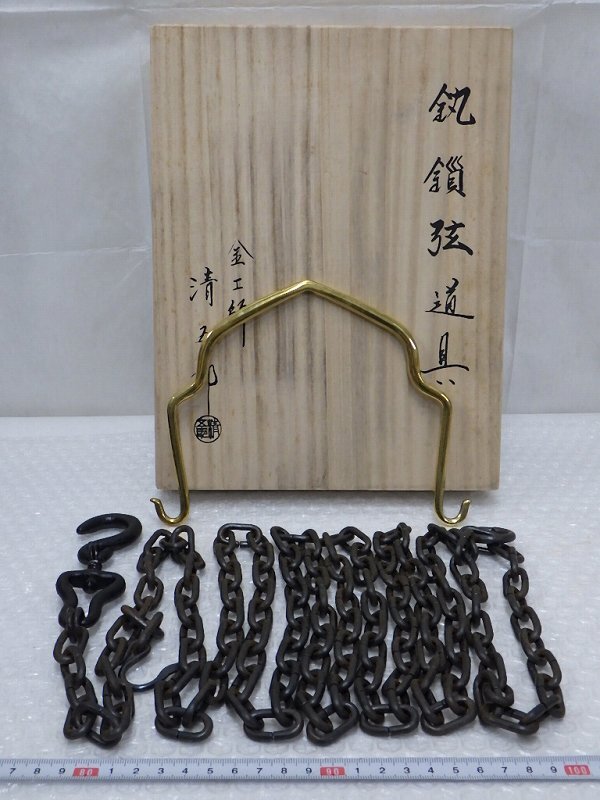 釻鎖弦道具
金工師
清五郎
7 8 9 80 1 2 3 4 5 6 7 8 9 90 1 2 3 4 5 6 7 8 9 100